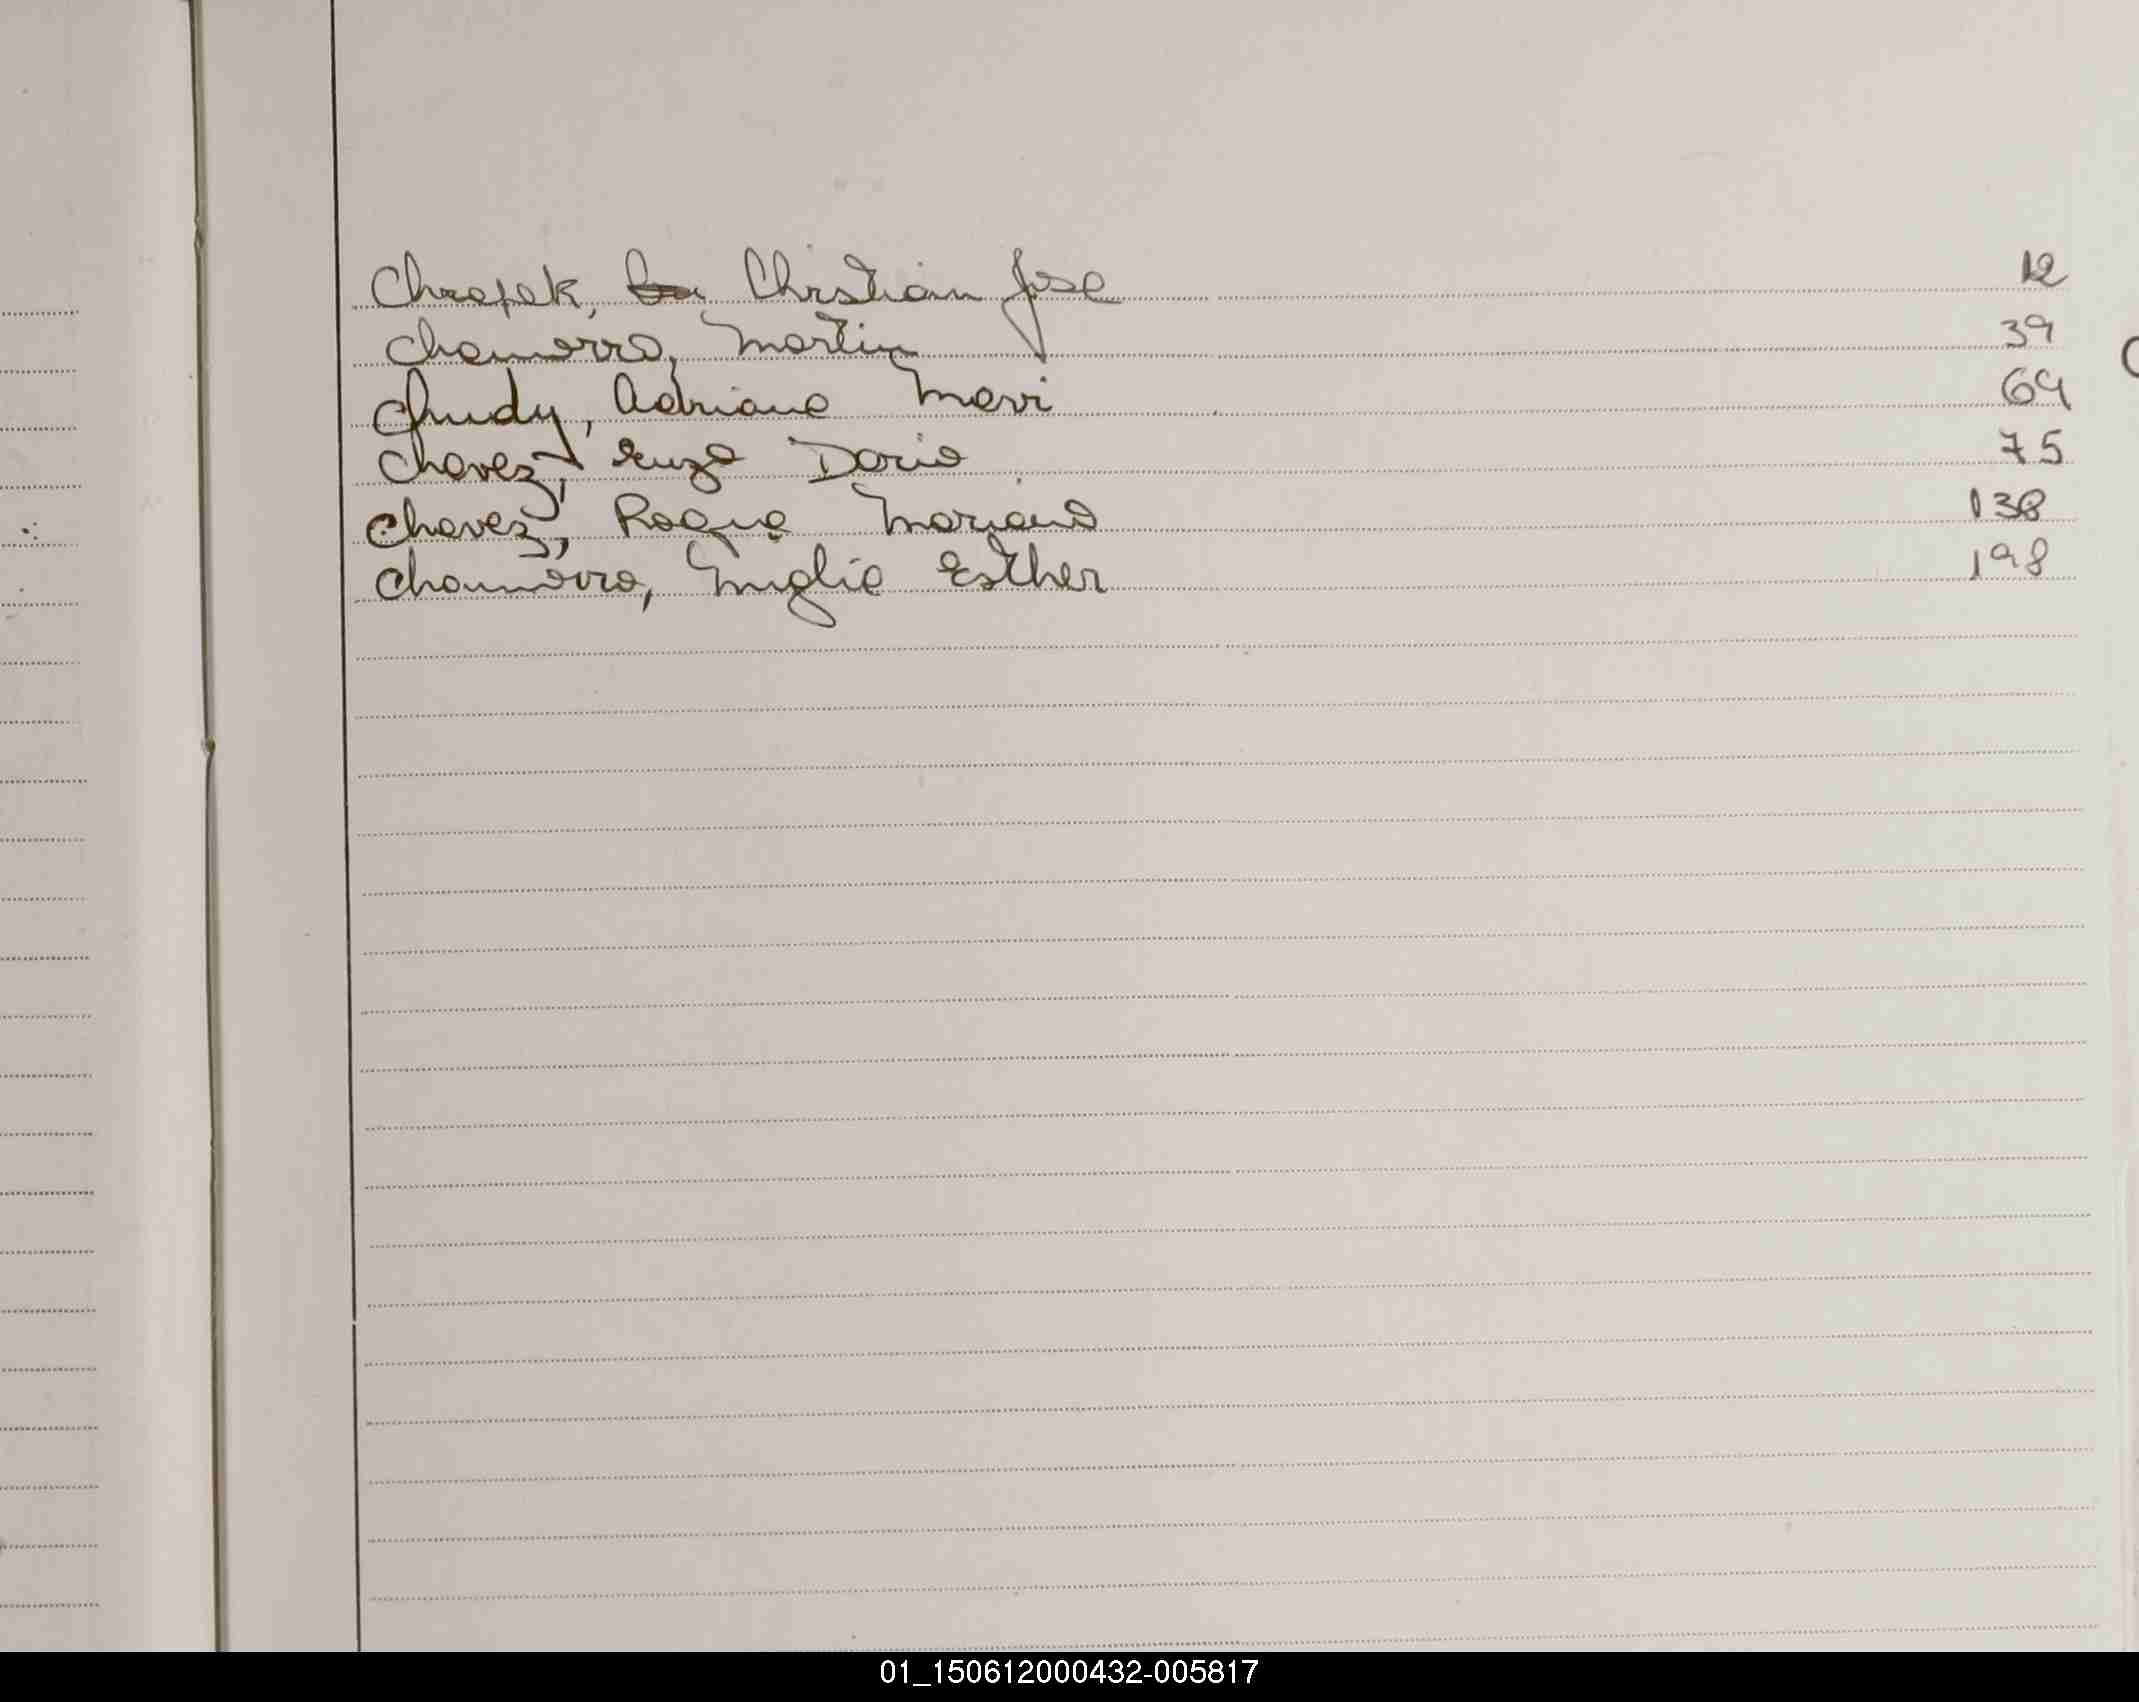 Chrapek, Christian Jose 12
Chamorro, Martin 39
Chudy, Adriana Mavi 64
Chavez, Enzo Dario 75
Chavez, Roque Mariano 138
Chamorro, Esther 198
01_150612000432-005817